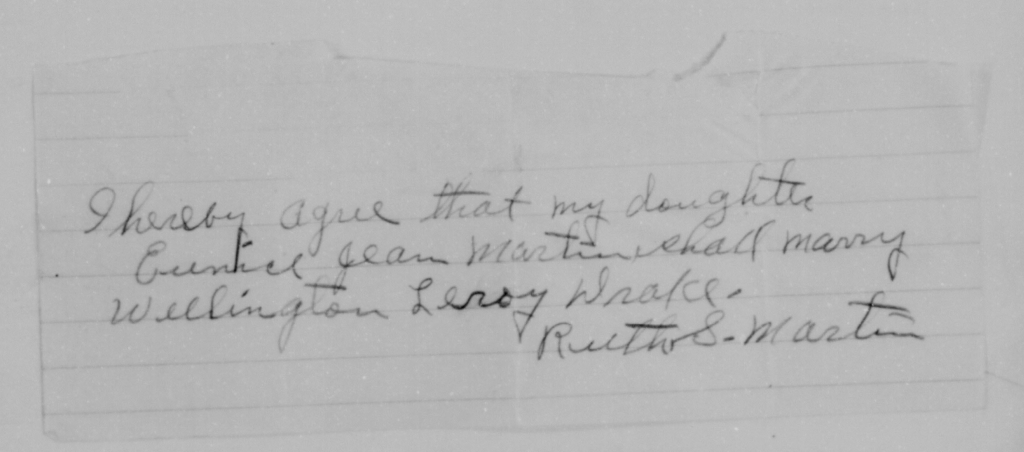 I hereby agree that my doughter
Eunice Jean Martin shall marry
Wellington Leroy Drake.
Ruth S. Martin